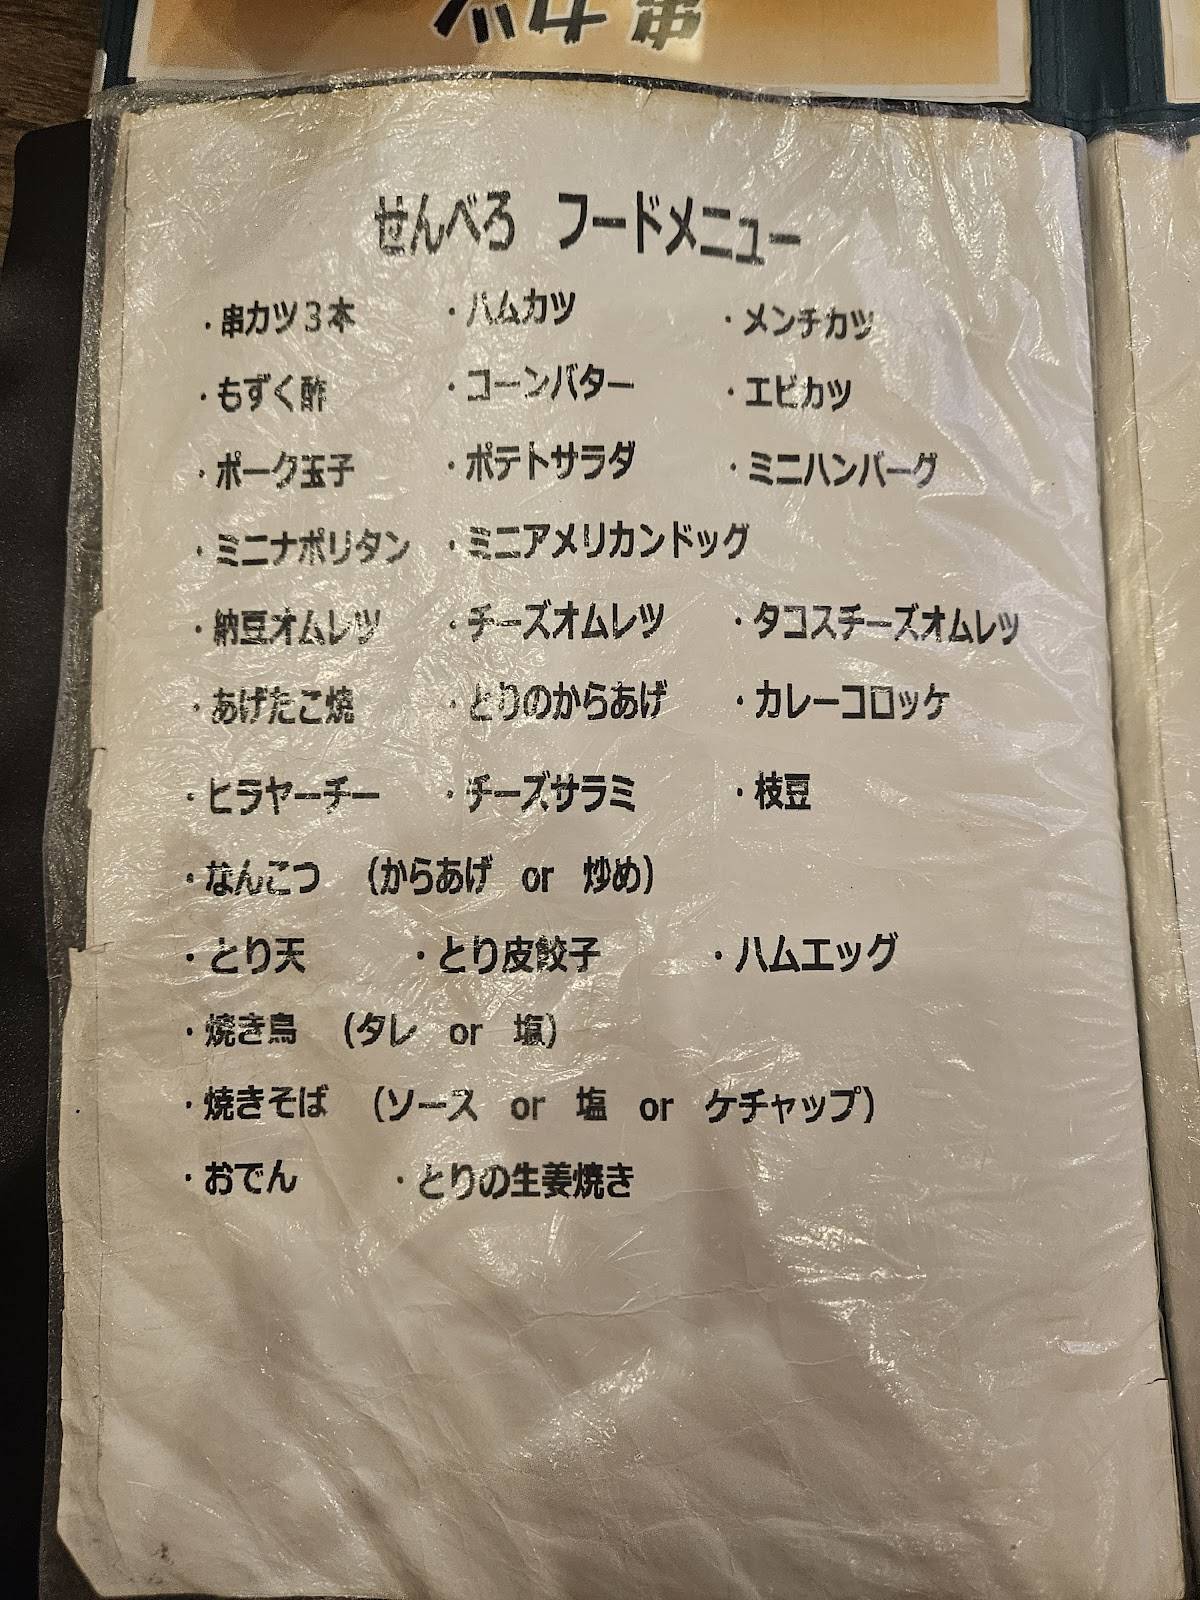 串カツ
せんべろ フードメニュー
・串カツ3本 ・ハムカツ ・メンチカツ
・もずく酢 ・コーンバター ・エビカツ
・ポーク玉子 ・ポテトサラダ ・ミニハンバーグ
・ミニナポリタン ・ミニアメリカンドッグ
・納豆オムレツ ・チーズオムレツ ・タコスチーズオムレツ
・あげたこ焼 ・とりのからあげ ・カレーコロッケ
・ヒラヤーチー ・チーズサラミ ・枝豆
・なんこつ (からあげ or 炒め)
・とり天 ・とり皮餃子 ・ハムエッグ
・焼き鳥 (タレ or 塩)
・焼きそば (ソース or 塩 or ケチャップ)
・おでん ・とりの生姜焼き